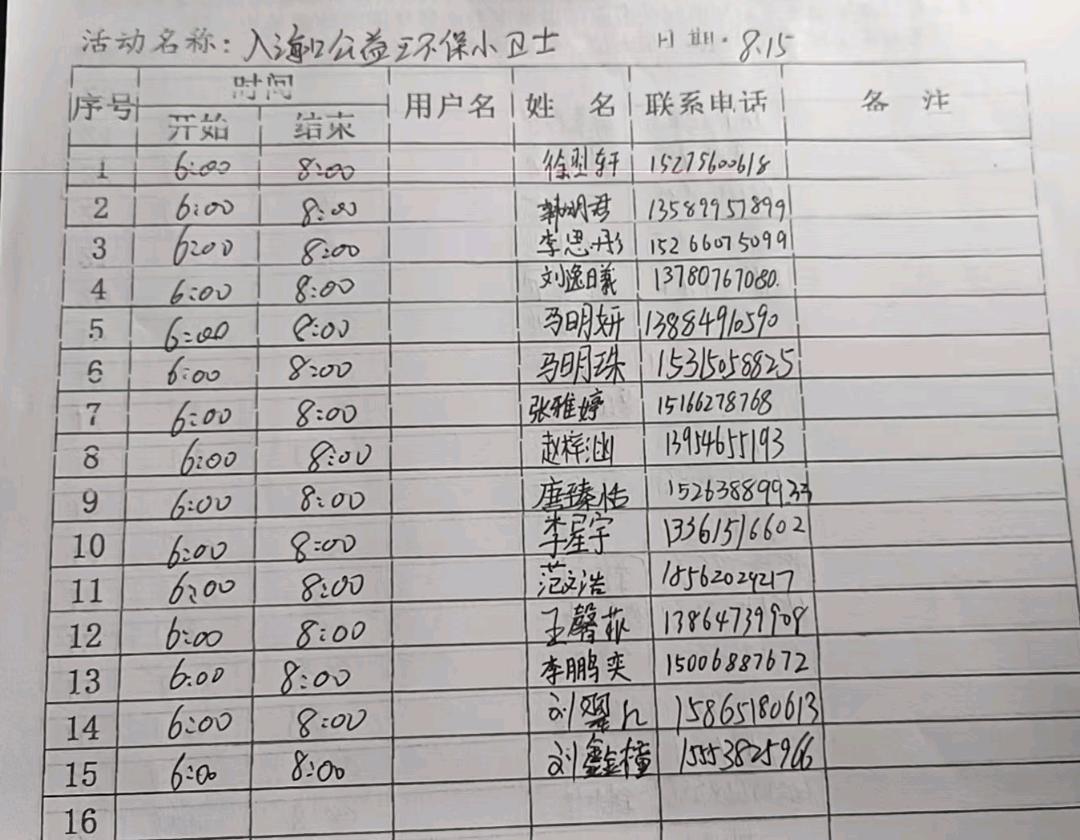 活动名称：入海口公益环保小卫士 日期：8.15
序号 时间 用户名 姓名 联系电话 备注
开始 结束
1 6:00 8:00 徐型轩 15275600618
2 6:00 8:00 韩明君 13589957899
3 6:00 8:00 李思彤 15266075099
4 6:00 8:00 刘逸曦 13780767080
5 6:00 8:00 马明妍 13884910590
6 6:00 8:00 马明珠 15315058825
7 6:00 8:00 张雅婷 15166278768
8 6:00 8:00 赵梓涵 13954655193
9 6:00 8:00 唐臻恬 152638899
10 6:00 8:00 李星宇 13361516602
11 6:00 8:00 范文浩 18562024217
12 6:00 8:00 王馨菲 13864739909
13 6:00 8:00 李鹏奕 15006887672
14 6:00 8:00 刘 15865180613
15 6:00 8:00 刘鑫橦 15553825966
16